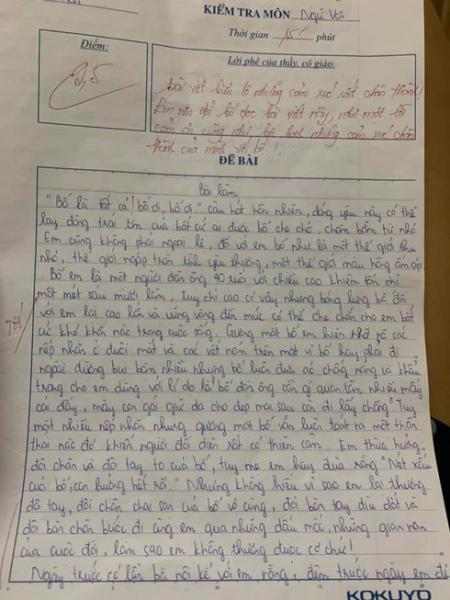 KIỂM TRA MÔN Ngữ Văn
Thời gian 15' phút
Điểm:
Lời phê của thầy, cô giáo.
Bài viết biểu lộ những cảm xúc rất chân thành!
Em nên để bố đọc bài viết này, như một lời
cảm ơn cũng như bộc bạch những cảm xúc chân
thành của mình với bố!
ĐỀ BÀI
Bài làm
"Bố là tất cả! bố ơi, bố ơi." câu hát hồn nhiên, đáng yêu này có thể
lay động trái tim của bất cứ ai được bố che chở, chăm bẵm từ nhỏ
Em cũng không phải ngoại lệ, đối với em bố như là một thế giới thu
nhỏ, thế giới ngập tràn tình yêu thương, một thế giới màu hồng ấm áp.
Bố em là một người đàn ông 40 tuổi với chiều cao khiêm tốn chỉ
một mét sáu mươi lăm, tuy chỉ cao có vậy nhưng bóng lưng bố đối
với em lại cao lớn và vững vàng đến mức có thể che chắn cho em bất
cứ khó khăn nào trong cuộc sống. Gương mặt bố em hiện rõ các
nếp nhăn ở đuôi mắt và các vết nám trên mặt vì bố hay phải đi
ngoài đường bụi bặm nhiều nhưng bố luôn đưa áo chống nắng và khẩu
trang cho em dùng với lí do là "bố đàn ông cần gì quan tâm nhiều mấy
cái đấy, mấy con gái giữ da cho đẹp mai sau còn đi lấy chồng" Tuy
mặt nhiều nếp nhăn nhưng gương mặt bố vẫn luôn toát ra một thần
thái nào đó khiến người đối diện rất có thiện cảm. Em thừa hưởng
đôi chân và đôi tay to của bố, tuy mẹ em hay đùa rằng "Nét xấu
của bố, con hưởng hết rồi." Nhưng không hiểu vì sao em lại thương
đôi tay, đôi chân chai sạn của bố vô cùng, đôi bàn tay dìu dắt và
đôi bàn chân bước đi cùng em qua những dấu mốc, những gian nan
của cuộc đời, làm sao em không thương được cơ chứ!
Ngày trước có lần bà nội kể với em rằng: đêm trước ngày em đẻ
KOKUYO